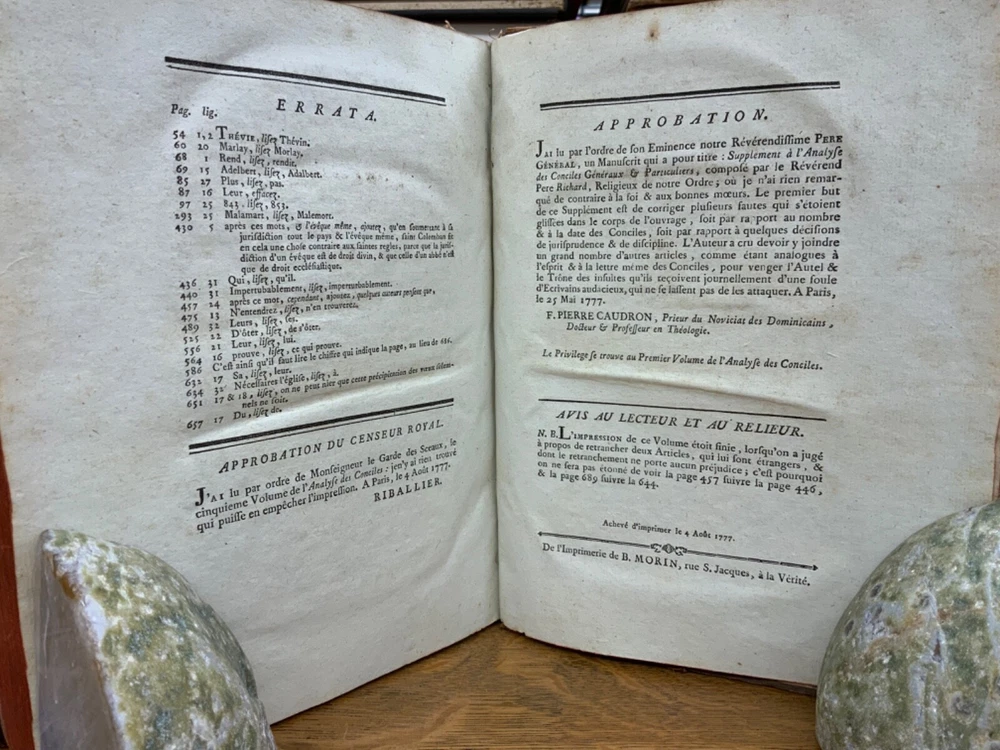 ERRATA.
Pag. lig.
54 1, 2 THÉVIE, lisez Thévin.
60 20 Marlay, lisez Morlay.
68 1 Rend, lisez, rendit.
69 15 Adelbert, lisez, Adalbert.
85 27 Plus, lisez, pas.
87 16 Leur, effacez.
97 25 843, lisez, 853.
293 25 Malamart, lisez, Malemort.
430 5 après ces mots, & l'évêque même, ajoutez, qu'en soumettant à sa
jurisdiction tout le pays & l'évêque même, saint Colomban fit
en cela une chose contraire aux saintes regles, parce que la juris-
diction d'un évêque est de droit divin, & que celle d'un abbé n'est
que de droit ecclésiastique.
436 31 Qui, lisez, qu'il.
440 31 Imperturbablement, lisez, imperturbablement.
457 24 après ce mot, cependant, ajoutez, quelques auteurs pensent que,
475 13 N'entendrez, lisez, n'en trouverez.
489 32 Leurs, lisez, ses.
525 22 D'ôter, lisez, de s'ôter.
556 21 Leur, lisez, lui.
564 16 prouve, lisez, ce qui prouve.
586 C'est ainsi qu'il faut lire le chiffre qui indique la page, au lieu de 686.
632 17 Sa, lisez, leur.
634 32 Nécessaires l'église, lisez, à.
651 17 & 18, lisez, on ne peut nier que cette précipitation des vœux solem-
nels ne soit.
657 17 Du, lisez de.
APPROBATION DU CENSEUR ROYAL.
J'AI lu par ordre de Monseigneur le Garde des Sceaux, le
cinquieme Volume de l'Analyse des Conciles: je n'y ai rien trouvé
qui puisse en empêcher l'impression. A Paris, le 4 Août 1777.
RIBALLIER.
APPROBATION.
J'AI lu par l'ordre de son Eminence notre Révérendissime PERE
GÉNÉRAL, un Manuscrit qui a pour titre: Supplément à l'Analyse
des Conciles Généraux & Particuliers, composé par le Révérend
Pere Richard, Religieux de notre Ordre; où je n'ai rien remar-
qué de contraire à la foi & aux bonnes mœurs. Le premier but
de ce Supplément est de corriger plusieurs fautes qui s'étoient
glissées dans le corps de l'ouvrage, soit par rapport au nombre
& à la date des Conciles, soit par rapport à quelques décisions
de jurisprudence & de discipline. L'Auteur a cru devoir y joindre
un grand nombre d'autres articles, comme étant analogues à
l'esprit & à la lettre même des Conciles, pour venger l'Autel &
le Trône des insultes qu'ils reçoivent journellement d'une foule
d'Ecrivains audacieux, qui ne se lassent pas de les attaquer. A Paris,
le 25 Mai 1777.
F. PIERRE CAUDRON, Prieur du Noviciat des Dominicains,
Docteur & Professeur en Théologie.
Le Privilege se trouve au Premier Volume de l'Analyse des Conciles.
AVIS AU LECTEUR ET AU RELIEUR.
N. B. L'IMPRESSION de ce Volume étoit finie, lorsqu'on a jugé
à propos de retrancher deux Articles, qui lui sont étrangers, &
dont le retranchement ne porte aucun préjudice; c'est pourquoi
on ne sera pas étonné de voir la page 457 suivre la page 446,
& la page 689 suivre la 644.
Achevé d'imprimer le 4 Août 1777.
De l'Imprimerie de B. MORIN, rue S. Jacques, à la Vérité.